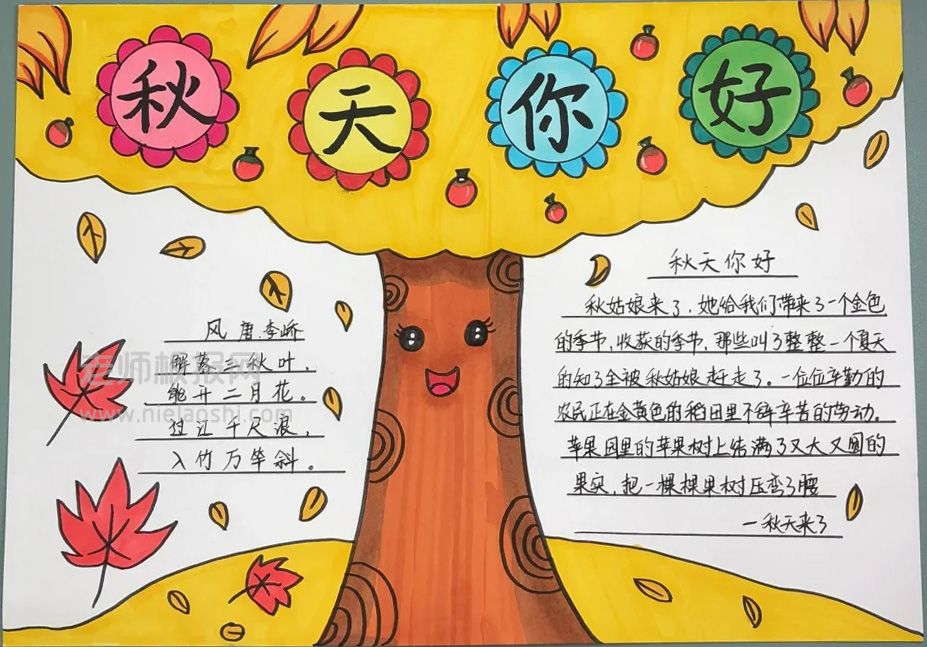 秋天你好
风 唐·李峤
解落三秋叶，
能开二月花。
过江千尺浪，
入竹万竿斜。
老师板报网
www.nielaoshi.com
秋天你好
秋姑娘来了，她给我们带来了一个金色
的季节，收获的季节，那些叫了整整一个夏天
的知了全被秋姑娘赶走了。一位位辛勤的
农民正在金黄色的稻田里不辞辛苦的劳动。
苹果园里的苹果树上结满了又大又圆的
果实，把一棵棵果树压弯了腰
—秋天来了